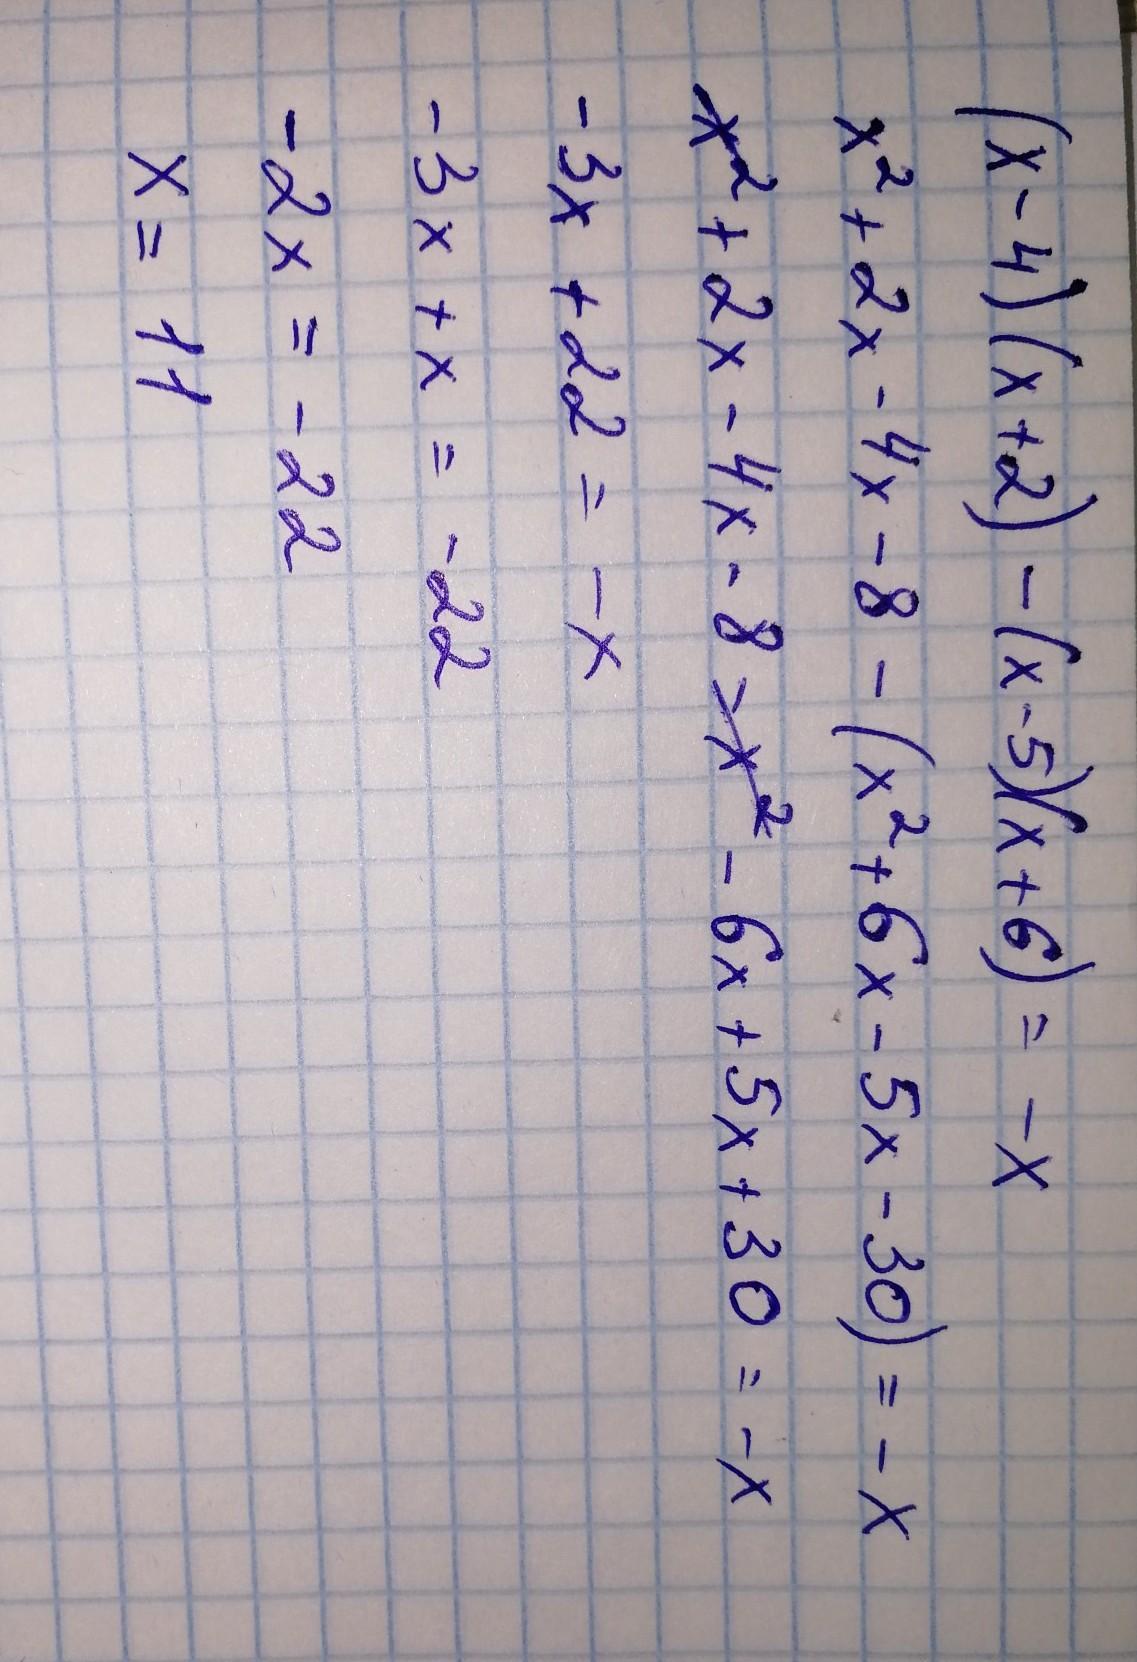 (x-4)(x+2)-(x-5)(x+6)=-x
x²+2x-4x-8-(x²+6x-5x-30)=-x
x²+2x-4x-8-x²-6x+5x+30=-x
-3x+22=-x
-3x+x=-22
-2x=-22
x=11